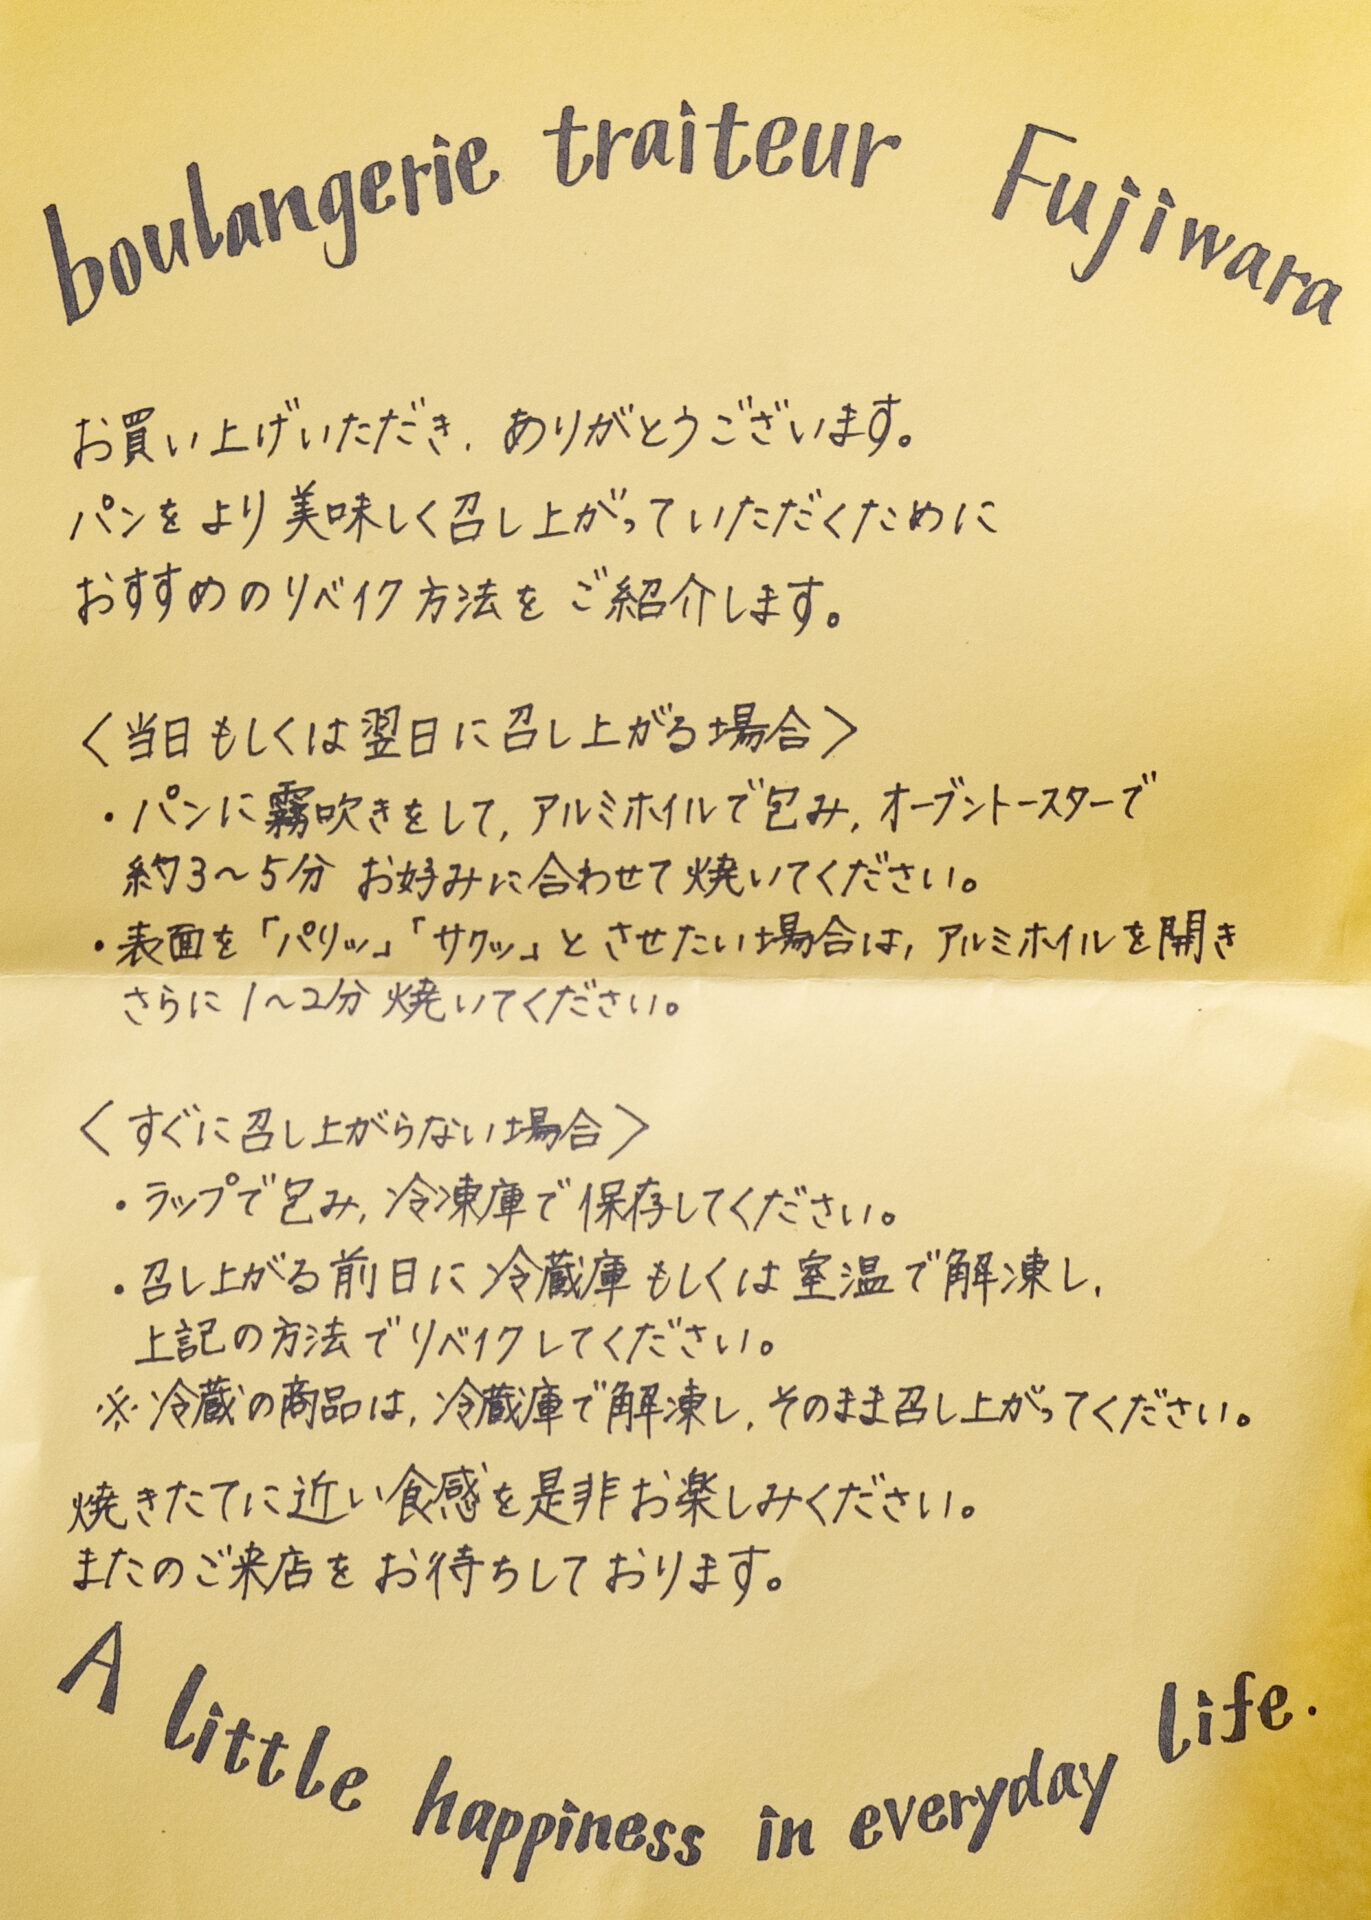 boulangerie traiteur Fujiwara
お買い上げいただき、ありがとうございます。
パンをより美味しく召し上がっていただくために
おすすめのリベイク方法をご紹介します。
〈当日もしくは翌日に召し上がる場合〉
・パンに霧吹きをして、アルミホイルで包み、オーブントースターで
約3〜5分 お好みに合わせて焼いてください。
・表面を「パリッ」「サクッ」とさせたい場合は、アルミホイルを開き
さらに1〜2分焼いてください。
〈すぐに召し上がらない場合〉
・ラップで包み、冷凍庫で保存してください。
・召し上がる前日に冷蔵庫もしくは室温で解凍し、
上記の方法でリベイクしてください。
※冷蔵の商品は、冷蔵庫で解凍し、そのまま召し上がってください。
焼きたてに近い食感を是非お楽しみください。
またのご来店をお待ちしております。
A little happiness in everyday life.